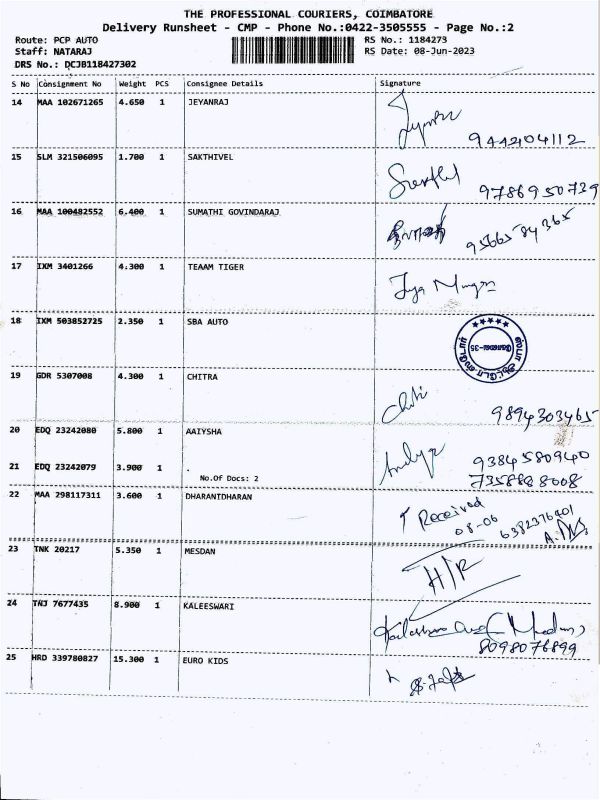 THE PROFESSIONAL COURIERS, COIMBATORE
Delivery Runsheet - CMP - Phone No.:0422-3505555 - Page No.:2
Route: PCP AUTO RS No.: 1184273
Staff: NATARAJ RS Date: 08-Jun-2023
DRS No.: DCJB118427302
S No Consignment No Weight PCS Consignee Details Signature
14 MAA 102671265 4.650 1 JEYANRAJ
9442104112
15 SLM 321506095 1.700 1 SAKTHIVEL
9786950739
16 MAA 100482552 6.400 1 SUMATHI GOVINDARAJ
9566584365
17 IXM 3401266 4.300 1 TEAAM TIGER
18 IXM 503852725 2.350 1 SBA AUTO
19 GDR 5307008 4.300 1 CHITRA
9894303465
20 EDQ 23242080 5.800 1 AAIYSHA
9384580940
21 EDQ 23242079 3.900 1
No.Of Docs: 2
7358888008
22 MAA 298117311 3.600 1 DHARANIDHARAN
Received
08-06 6382376401
23 TNK 20217 5.350 1 MESDAN
H/R
24 TNJ 7677435 8.900 1 KALEESWARI
8098076899
25 HRD 339780827 15.300 1 EURO KIDS